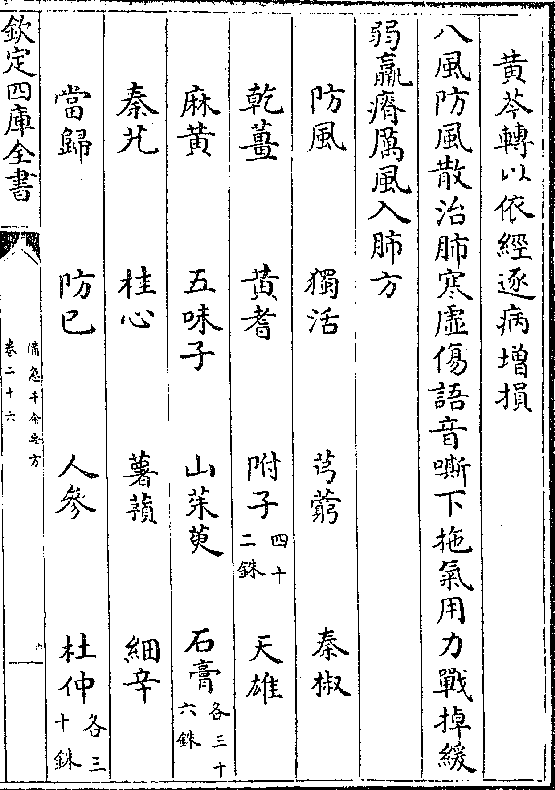 黄芩轉以依經逐病增損
八風防風散治肺寒虛傷語音嘶下拖氣用力戰掉緩
弱羸瘠厲風入肺方
防風 獨活 芎藭 秦椒
乾薑 黄耆 附子四十二銖 天雄
麻黄 五味子 山茱萸 石膏各三十六銖
秦艽 桂心 薯蕷 細辛
當歸 防已 人參 杜仲各三十銖
欽定四庫全書
備急千金要方
卷二十六